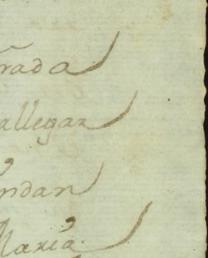 rada
allegar
ndan
María